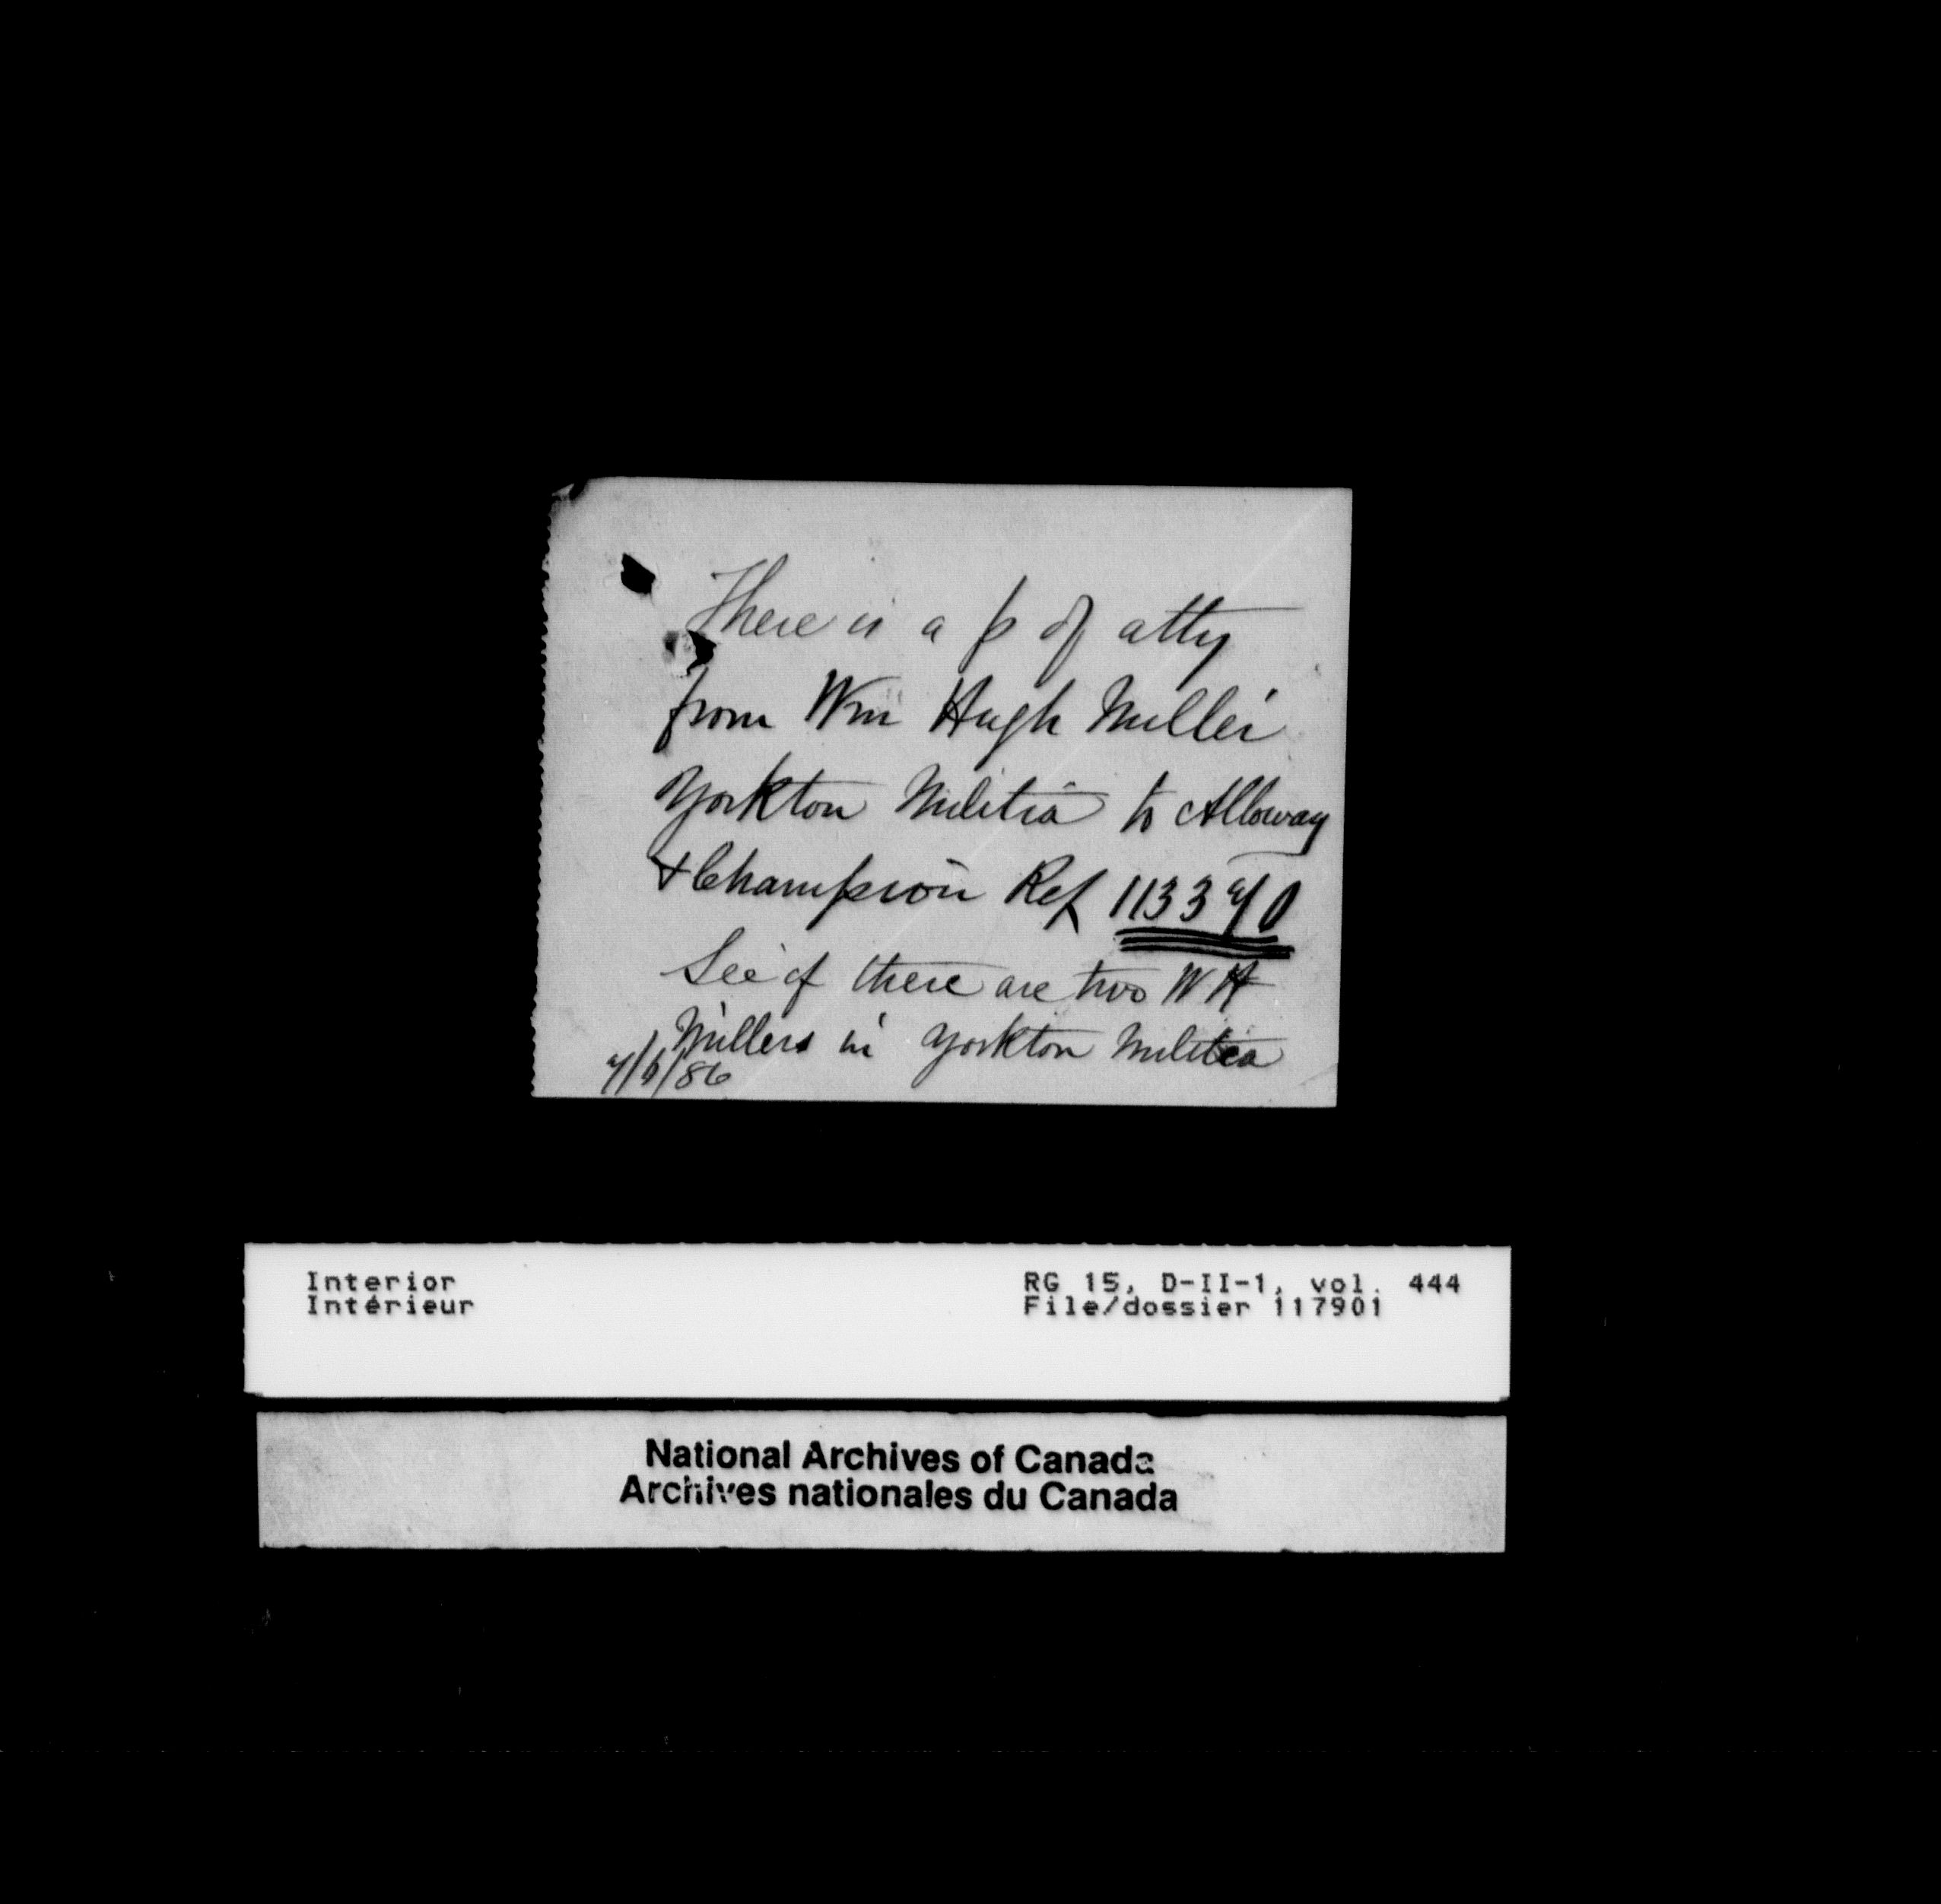 There is a p of atty
from Wm Hugh Miller
Yorkton Militia to Alloway
& Champion Ref 113370
See if there are two W H
Millers in Yorkton Militia
7/6/86
Interior
Intérieur
RG 15, D-II-1, vol. 444
File/dossier 117901
National Archives of Canada
Archives nationales du Canada